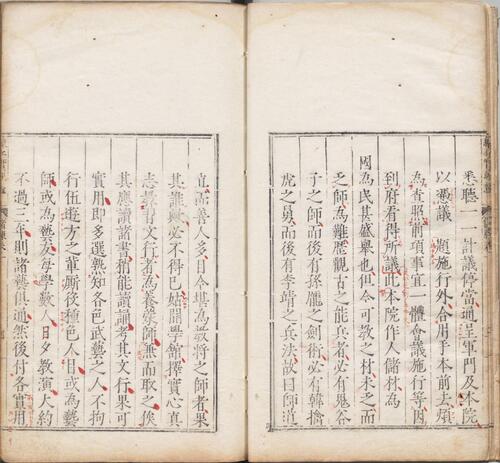 乘聽一一計議停當通呈軍門及本院
以憑議 題施行外合用手本前去煩
為查照前項事宜一體會議施行等因
到府看得所議此本院作人儲材為
國為民甚盛舉也但今可教之材未乏而
乏師為難歷觀古之能兵者必有鬼谷
子之師而後有孫臏之劍術必有韓擒
虎之舅而後有李靖之兵法故曰師道
立而善人多目今堪為教將之師者果
其誰歟必不得已姑開學舘擇實心真
志教習文行者為養蒙師無而取之俟
其應讀諸書稍能讀誦考其文行果可
實用即多選熟知各邑武藝之人不拘
行伍遊方之輩厮役種色人目或為藝
師或為藝友每學數人日夕教演大約
不過三年則諸藝俱通然後付各實用